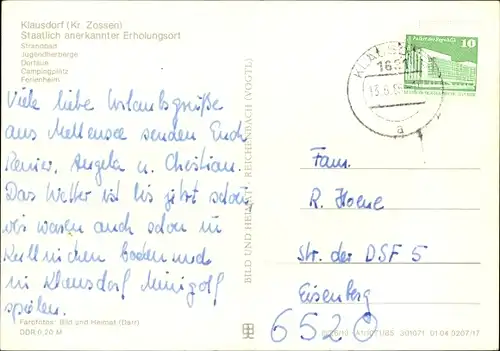 Klausdorf (Kr. Zossen)
Staatlich anerkannter Erholungsort
Strandbad
Jugendherberge
Dorfaue
Campingplatz
Ferienheim
Viele liebe Urlaubsgrüße
aus Mellensee senden Euch
Angela u. Christian.
Das Wetter ist bis jetzt schön
wir waren auch schon in
baden und
in Klausdorf Minigolf
spielen.
Farbfotos: Bild und Heimat (Darr)
DDR 0,20 M
BILD UND HEIMAT · REICHENBACH (VOGTL)
10
1631
a
Fam.
R. Hoene
Str. der DSF 5
Eisenberg
6520
01 04 0207/17